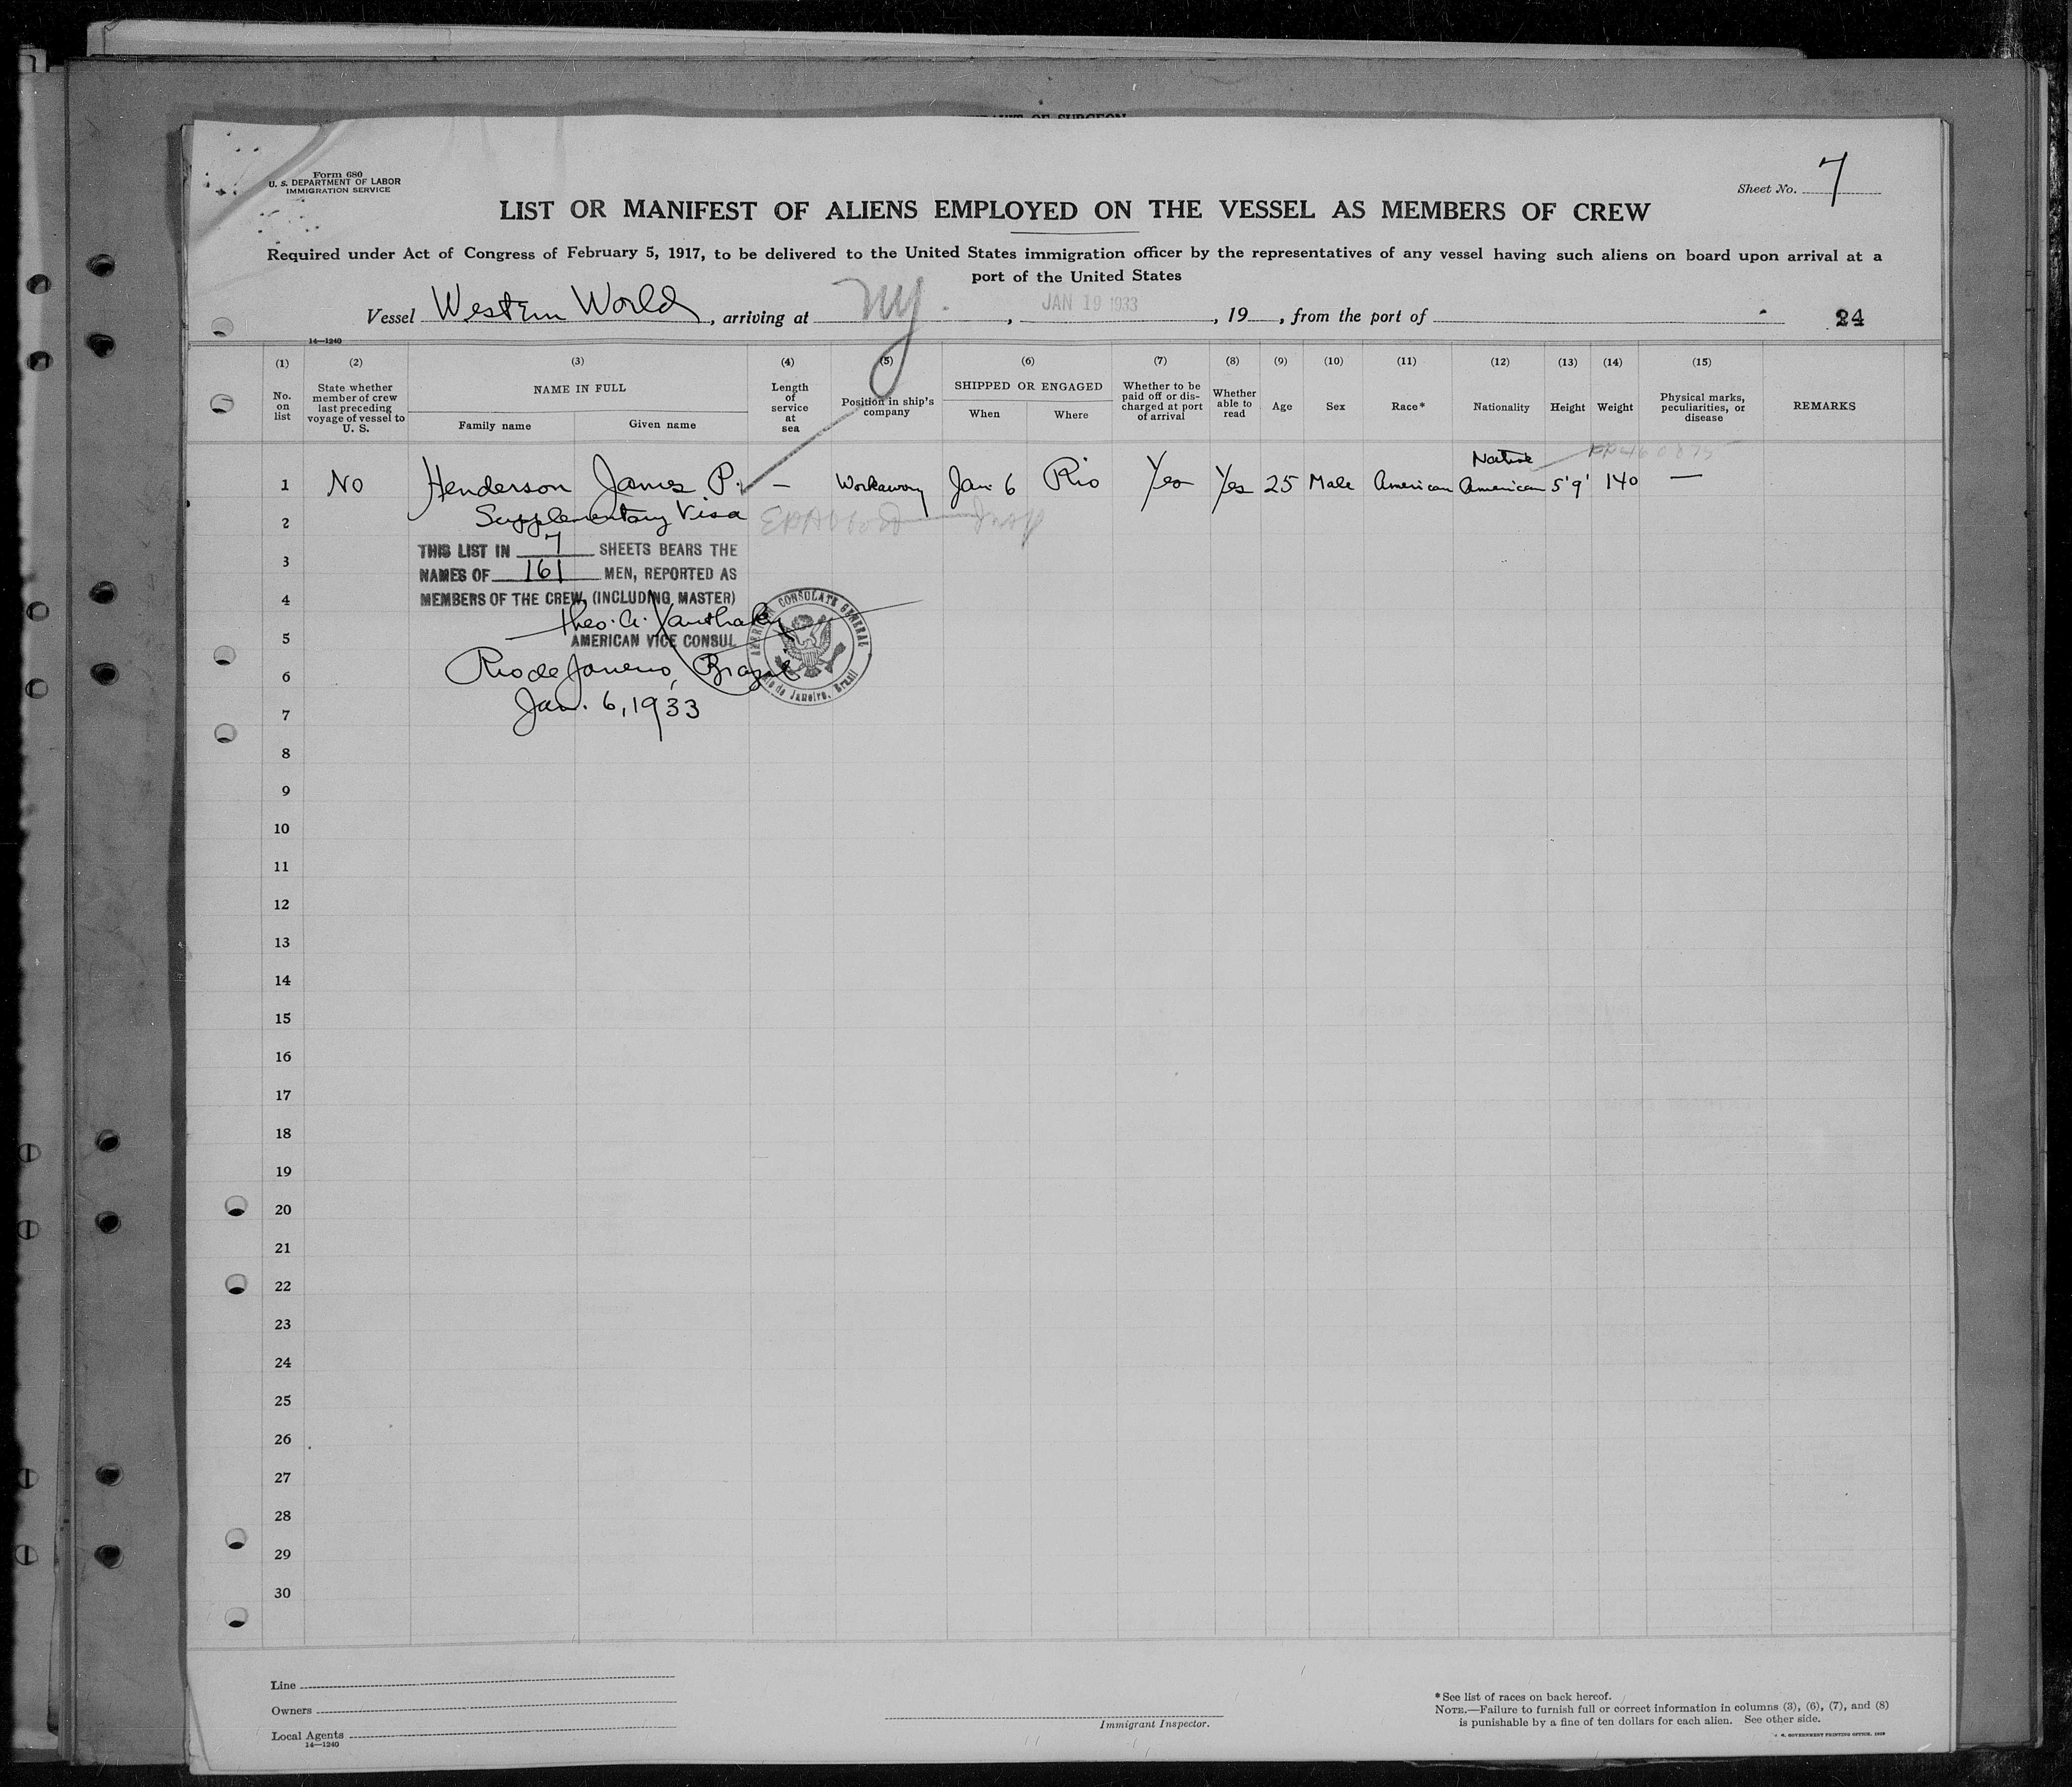 Form 680
U. S. DEPARTMENT OF LABOR
IMMIGRATION SERVICE
Sheet No. 7
LIST OR MANIFEST OF ALIENS EMPLOYED ON THE VESSEL AS MEMBERS OF CREW
Required under Act of Congress of February 5, 1917, to be delivered to the United States immigration officer by the representatives of any vessel having such aliens on board upon arrival at a
port of the United States
Vessel Western World, arriving at NY., JAN 19 1933, 19, from the port of 24
14—1240
(1) (2) (3) (4) (5) (6) (7) (8) (9) (10) (11) (12) (13) (14) (15)
No. on list
State whether member of crew last preceding voyage of vessel to U. S.
NAME IN FULL
Family name
Given name
Length of service at sea
Position in ship's company
SHIPPED OR ENGAGED
When
Where
Whether to be paid off or discharged at port of arrival
Whether able to read
Age
Sex
Race*
Nationality
Height
Weight
Physical marks, peculiarities, or disease
REMARKS
Native
1 No Henderson James P. — Workaway Jan. 6 Rio Yes Yes 25 Male American American 5'9' 140 —
2 Supplementary Visa
3 THIS LIST IN 7 SHEETS BEARS THE
NAMES OF 161 MEN, REPORTED AS
4 MEMBERS OF THE CREW, (INCLUDING MASTER)
Theo. A. Xanthaky
5 AMERICAN VICE CONSUL
AMERICAN CONSULATE GENERAL
Rio de Janeiro, Brazil
6 Rio de Janeiro, Brazil
7 Jan. 6, 1933
8
9
10
11
12
13
14
15
16
17
18
19
20
21
22
23
24
25
26
27
28
29
30
Line
Owners
Local Agents
14—1240
Immigrant Inspector.
*See list of races on back hereof.
NOTE.—Failure to furnish full or correct information in columns (3), (6), (7), and (8)
is punishable by a fine of ten dollars for each alien. See other side.